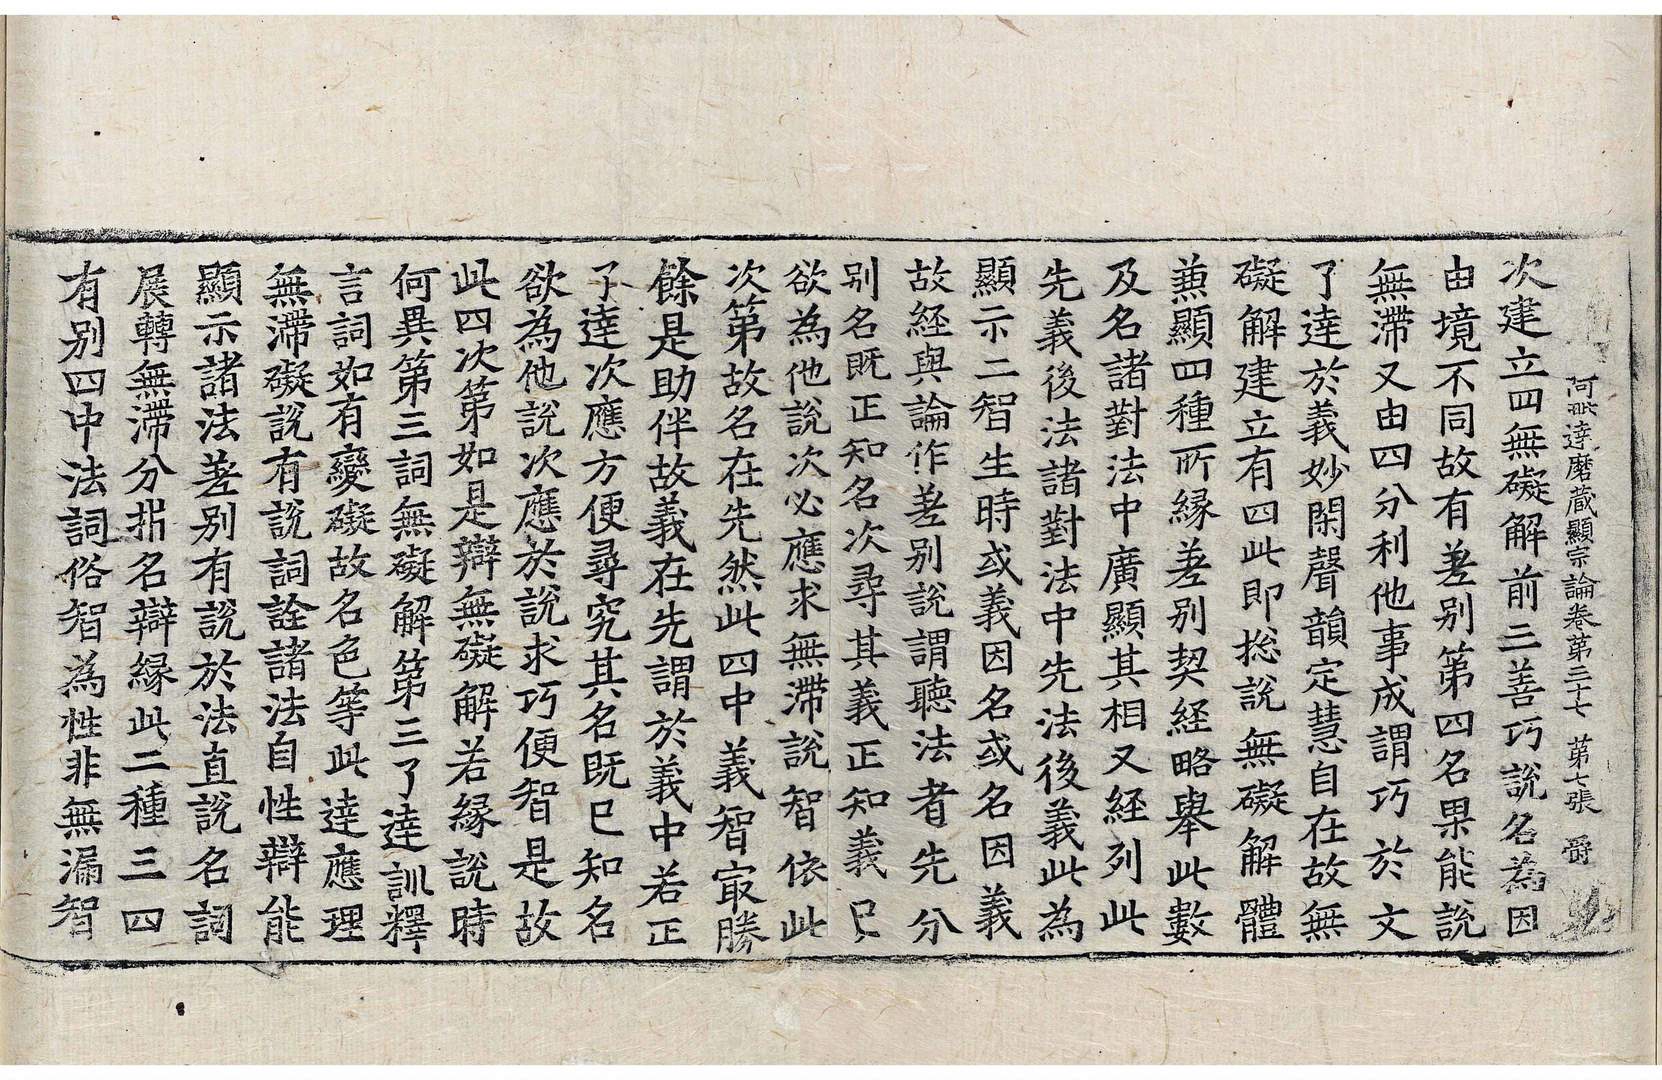 阿毗達磨藏顯宗論卷第三十七 第七張 爵
次建立四無礙解前三善巧說名為因
由境不同故有差別第四名果能說
無滯又由四分利他事成謂巧於文
了達於義妙閑聲韻定慧自在故無
礙解建立有四此即捴說無礙解體
兼顯四種所緣差別契經略舉此數
及名諸對法中廣顯其相又經列此
先義後法諸對法中先法後義此為
顯示二智生時或義因名或名因義
故經與論作差別說謂聽法者先分
別名既正知名次尋其義正知義已
欲為他說次必應求無滯說智依此
次第故名在先然此四中義智㝡勝
餘是助伴故義在先謂於義中若正
了達次應方便尋究其名既已知名
欲為他說次應於說求巧便智是故
此四次第如是辯無礙解若緣說時
何異第三詞無礙解第三了達訓釋
言詞如有變礙故名色等此達應理
無滯礙說有說詞詮諸法自性辯能
顯示諸法差別有說於法直說名詞
展轉無滯分析名辯緣此二種三四
有別四中法詞俗智為性非無漏智